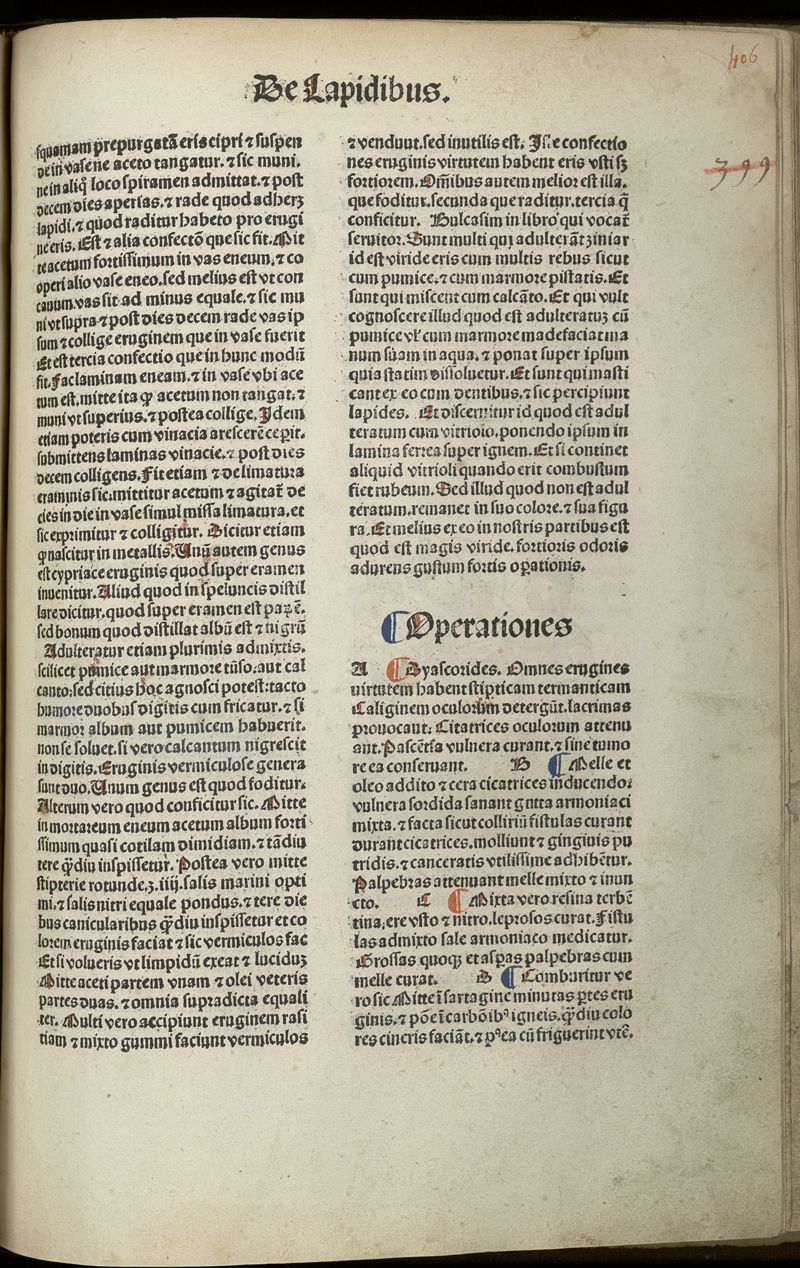 406
De Lapidibus.
399
squamam prepurgatā eris cipri ⁊ suspen
de in vase ne aceto tangatur. ⁊ sic muni.
ne in aliq̄ loco spiramen admittat. ⁊ post
decem dies aperias. ⁊ rade quod adherꝫ
lapidi. ⁊ quod raditur habeto pro erugi
ne eris. Est ⁊ alia confectō que sic fit. Mit
te acetum fortissimum in vas eneum. ⁊ co
operi alio vase eneo. sed melius est vt con
cauum. vas sit ad minus equale. ⁊ sic mu
ni vt supra ⁊ post dies decem rade vas ip
sum ⁊ collige eruginem que in vase fuerit
Et est tercia confectio que in hunc modū
fit. fac laminam eneam. ⁊ in vase vbi ace
tum est. mitte ita ꝙ acetum non tangat. ⁊
muni vt superius. ⁊ postea collige. Idem
etiam poteris cum vinacia arescerē cepit.
submittens laminas vinacie. ⁊ post dies
decem colligens. Fit etiam ⁊ de limatura
eraminis sic. mittitur acetum ⁊ agitat̄ de
cies in die in vase simul missa limatura. et
sic exprimitur ⁊ colligitur. Dicitur etiam
ꝙ nascitur in metallis. Unū autem genus
est cypriace eruginis quod super eramen
inuenitur. Aliud quod in speluncis distil
lare dicitur. quod super eramen est
sed bonum quod distillat albū est ⁊ nigrū
Adulteratur etiam plurimis admixtis.
scilicet pumice aut marmore tūso: aut cal
canto: sed citius hoc agnosci potest: tacto
humore duobus digitis cum fricatur. ⁊ si
marmor album aut pumicem habuerit.
non se soluet. si vero calcantum nigrescit
in digitis. Eruginis vermiculose genera
sunt duo. Unum genus est quod foditur.
Alterum vero quod conficitur sic. Mitte
in mortareum eneum acetum album forti
ssimum quasi cotilam dimidiam. ⁊ tādiu
tere q̄diu inspissetur. Postea vero mitte
stipterie rotunde. ʒ. iiij. salis marini opti
mi. ⁊ salis nitri equale pondus. ⁊ tere die
bus canicularibus q̄diu inspissetur et co
lorem eruginis faciat ⁊ sic vermiculos fac
Et si volueris vt limpidū exeat ⁊ luciduꝫ
Mitte aceti partem vnam ⁊ olei veteris
partes duas. ⁊ omnia supradicta equali
ter. Multi vero accipiunt eruginem rasi
tiam ⁊ mixto gummi faciunt vermiculos
⁊ vendunt. sed inutilis est. Iste confectio
nes eruginis virtutem habent eris vsti sꝫ
fortiorem. Oīnibus autem melior est illa.
que foditur. secunda que raditur. tercia q̄
conficitur. Bulcasim in libro qui vocat̄
seruitor. Sunt multi qui adulterāt ziniar
id est viride eris cum multis rebus sicut
cum pumice. ⁊ cum marmore pistatis. Et
sunt qui miscent cum calcāto. Et qui vult
cognoscere illud quod est adulteratuꝫ cū
pumice vel cum marmore madefaciat ma
num suam in aqua. ⁊ ponat super ipsum
quia statim dissoluetur. Et sunt qui masti
cant ex eo cum dentibus. ⁊ sic percipiunt
lapides. Et discernitur id quod est adul
teratum cum vitriolo. ponendo ipsum in
lamina ferrea super ignem. Et si continet
aliquid vitrioli quando erit combustum
fiet rubeum. Sed illud quod non est adul
teratum. remanet in suo colore. ⁊ sua figu
ra. Et melius ex eo in nostris partibus est
quod est magis viride. fortioris odoris
adurens gustum fortis oꝑationis.
¶Operationes
A ¶Dyascorides. Omnes erugines
uirtutem habent stipticam termanticam
Caliginem oculorum detergūt. lacrimas
prouocant. Citatrices oculorum attenu
ant. Pascētia vulnera curant. ⁊ sine tumo
re ea conseruant. B ¶Melle et
oleo addito ⁊ cera cicatrices inducendo:
vulnera sordida sanant gutta armoniaci
mixta. ⁊ facta sicut colliriū fistulas curant
durant cicatrices. molliunt ⁊ gingiuis pu
tridis. ⁊ canceratis vtilissime adhibētur.
Palpebras attenuant melle mixto ⁊ inun
cto. C ¶Mixta vero resina terbē
tina: ere vsto ⁊ nitro. leprosos curat. Fistu
las admixto sale armoniaco medicatur.
Grossas quoqꝫ et asꝑas palpebras cum
melle curat. D ¶Comburitur ve
ro sic Mitte ī sartagine minutas ꝑtes eru
ginis. ⁊ pōe ī carbōibꝰ igneis. q̄diu colo
res cineris faciāt. ⁊ pꝰea cū friguerint vtē.